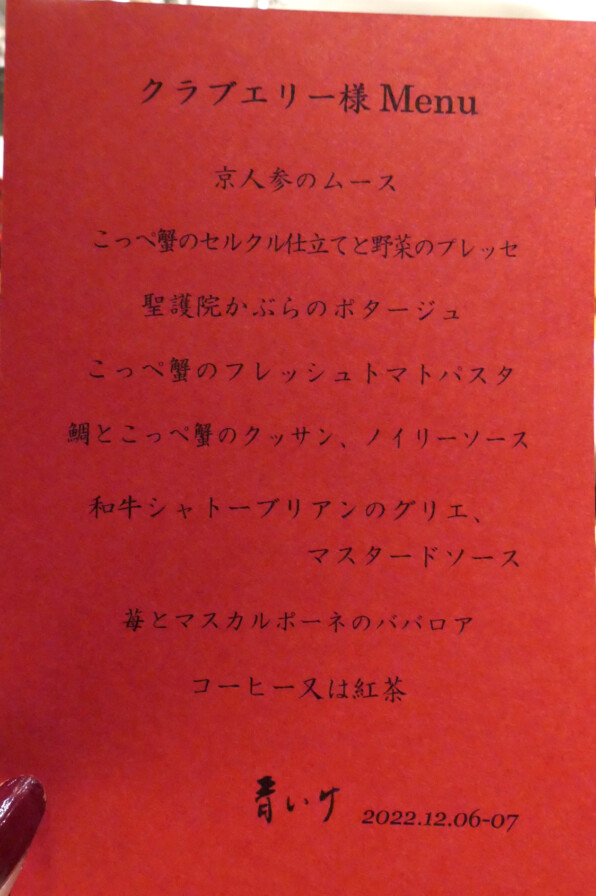 クラブエリー様 Menu
京人参のムース
こっぺ蟹のセルクル仕立てと野菜のプレッセ
聖護院かぶらのポタージュ
こっぺ蟹のフレッシュトマトパスタ
鯛とこっぺ蟹のクッサン、ノイリーソース
和牛シャトーブリアンのグリエ、
マスタードソース
苺とマスカルポーネのババロア
コーヒー又は紅茶
青いけ 2022.12.06-07